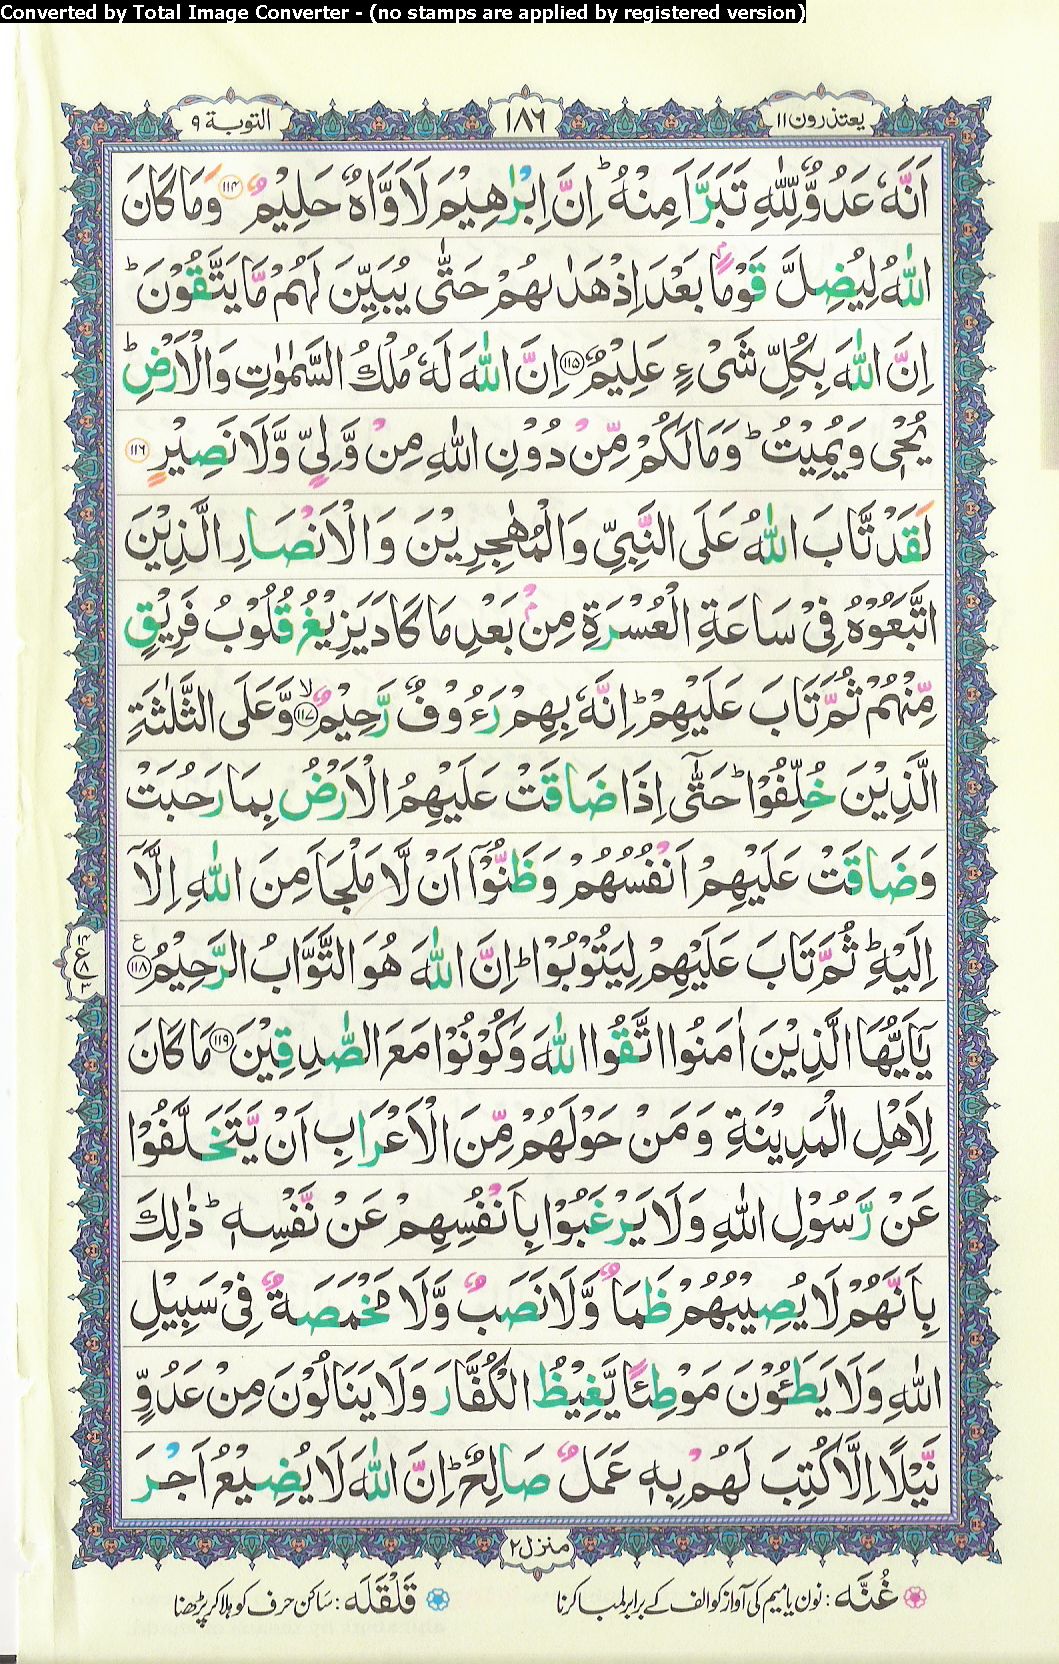 Converted by Total Image Converter - (no stamps are applied by registered version)
یعتذرون ۱۱
۱۸۶
التوبة ۹
اَنَّهٗ عَدُوٌّ لِّلّٰهِ تَبَرَّاَ مِنْهُ ؕ اِنَّ اِبْرٰهِیْمَ لَاَوَّاهٌ حَلِیْمٌ ﴿۱۱۴﴾ وَمَا كَانَ
اللّٰهُ لِیُضِلَّ قَوْمًۢا بَعْدَ اِذْ هَدٰىهُمْ حَتّٰی یُبَیِّنَ لَهُمْ مَّا یَتَّقُوْنَ ؕ
اِنَّ اللّٰهَ بِكُلِّ شَیْءٍ عَلِیْمٌ ﴿۱۱۵﴾ اِنَّ اللّٰهَ لَهٗ مُلْكُ السَّمٰوٰتِ وَالْاَرْضِ ؕ
یُحْیٖ وَیُمِیْتُ ؕ وَمَا لَكُمْ مِّنْ دُوْنِ اللّٰهِ مِنْ وَّلِیٍّ وَّلَا نَصِیْرٍ ﴿۱۱۶﴾
لَقَدْ تَّابَ اللّٰهُ عَلَی النَّبِیِّ وَالْمُهٰجِرِیْنَ وَالْاَنْصَارِ الَّذِیْنَ
اتَّبَعُوْهُ فِیْ سَاعَةِ الْعُسْرَةِ مِنْۢ بَعْدِ مَا كَادَ یَزِیْغُ قُلُوْبُ فَرِیْقٍ
مِّنْهُمْ ثُمَّ تَابَ عَلَیْهِمْ ؕ اِنَّهٗ بِهِمْ رَءُوْفٌ رَّحِیْمٌ ﴿۱۱۷﴾ۙ وَّعَلَی الثَّلٰثَةِ
الَّذِیْنَ خُلِّفُوْا ؕ حَتّٰۤی اِذَا ضَاقَتْ عَلَیْهِمُ الْاَرْضُ بِمَا رَحُبَتْ
وَضَاقَتْ عَلَیْهِمْ اَنْفُسُهُمْ وَظَنُّوْۤا اَنْ لَّا مَلْجَاَ مِنَ اللّٰهِ اِلَّاۤ
اِلَیْهِ ؕ ثُمَّ تَابَ عَلَیْهِمْ لِیَتُوْبُوْا ؕ اِنَّ اللّٰهَ هُوَ التَّوَّابُ الرَّحِیْمُ ﴿۱۱۸﴾ ع
یٰۤاَیُّهَا الَّذِیْنَ اٰمَنُوا اتَّقُوا اللّٰهَ وَكُوْنُوْا مَعَ الصّٰدِقِیْنَ ﴿۱۱۹﴾ مَا كَانَ
لِاَهْلِ الْمَدِیْنَةِ وَمَنْ حَوْلَهُمْ مِّنَ الْاَعْرَابِ اَنْ یَّتَخَلَّفُوْا
عَنْ رَّسُوْلِ اللّٰهِ وَلَا یَرْغَبُوْا بِاَنْفُسِهِمْ عَنْ نَّفْسِهٖ ؕ ذٰلِكَ
بِاَنَّهُمْ لَا یُصِیْبُهُمْ ظَمَاٌ وَّلَا نَصَبٌ وَّلَا مَخْمَصَةٌ فِیْ سَبِیْلِ
اللّٰهِ وَلَا یَطَـُٔوْنَ مَوْطِئًا یَّغِیْظُ الْكُفَّارَ وَلَا یَنَالُوْنَ مِنْ عَدُوٍّ
نَّیْلًا اِلَّا كُتِبَ لَهُمْ بِهٖ عَمَلٌ صَالِحٌ ؕ اِنَّ اللّٰهَ لَا یُضِیْعُ اَجْرَ
۱۴
ع ۸
۳
منزل ۲
غُنَّه : نون یا میم کی آواز کو الف کے برابر لمبا کرنا
قَلْقَلَه : ساکن حرف کو ہلا کر پڑھنا